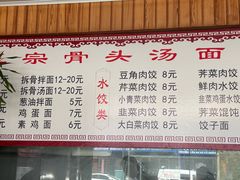 宗骨头汤面
拆骨拌面12-20元
拆骨汤面12-20元
葱油拌面 5元
鸡蛋面 7元
素鸡面 6元
水饺类
豆角肉饺 8元
芹菜肉饺 8元
小青菜肉饺 8元
韭菜肉饺 8元
大白菜肉饺 8元
荠菜肉饺
鲜肉水饺
韭菜鸡蛋水饺
荠菜肉馄饨
饺子面